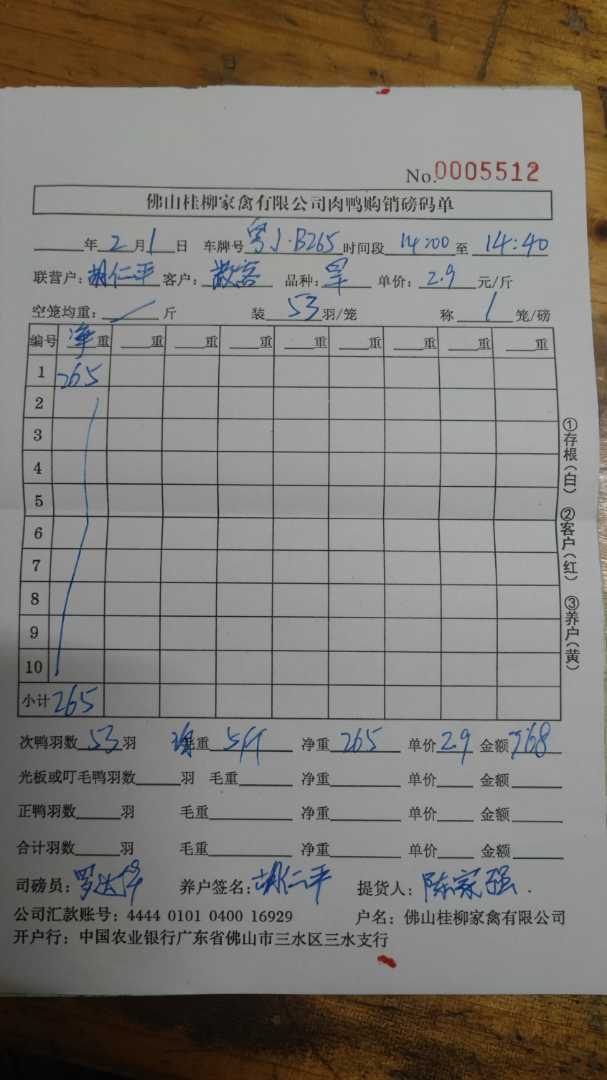 No.0005512
佛山桂柳家禽有限公司肉鸭购销磅码单
年 2 月 1 日 车牌号 粤J·B265 时间段 14:00 至 14:40
联营户: 胡仁平 客户: 散客 品种: 单价: 2.9 元/斤
空笼均重: / 斤 装 53 羽/笼 称 1 笼/磅
编号 净重 重 重 重 重 重 重 重 重
1 265
2
3
4
5
6
7
8
9
10
小计 265
①存根(白) ②客户(红) ③养户(黄)
次鸭羽数 53 羽 毛重 5斤 净重 265 单价 2.9 金额 768
光板或叮毛鸭羽数 羽 毛重 净重 单价 金额
正鸭羽数 羽 毛重 净重 单价 金额
合计羽数 羽 毛重 净重 单价 金额
司磅员: 养户签名: 胡仁平 提货人: 陈家强.
公司汇款账号: 4444 0101 0400 16929 户名: 佛山桂柳家禽有限公司
开户行: 中国农业银行广东省佛山市三水区三水支行